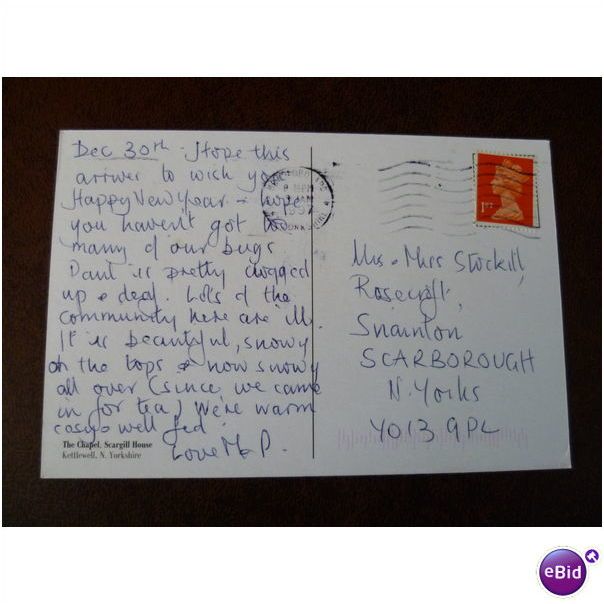 Dec 30th Hope this
arrives to wish you
Happy New Year & hope
you haven't got too
many of our bugs
Dad is pretty clogged
up & deaf. Lots of the
community here are ill.
It is beautiful, snowy
on the tops & now snowy
all over (since we came
in for tea) We're warm
cosy & well fed.
Love M & P.
The Chapel, Scargill House
Kettlewell, N. Yorkshire
1st
Mrs & Miss Stockill,
Rosecroft,
Snainton
SCARBOROUGH
N. Yorks
YO13 9PL
eBid